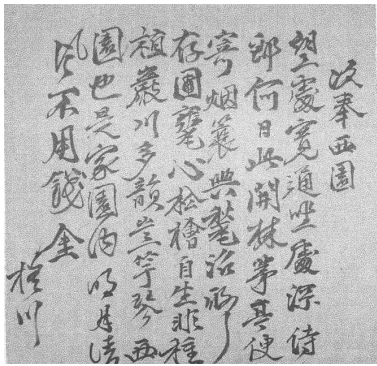 次奉西園
望處寬通坐處深侍
郎何日此開林茅亭便
寄烟簑興鑿沼
存圃甕心松檜自生非種
植巖川多韻豈竽琴西
園也是家園內明月清
风不用錢金
梧川